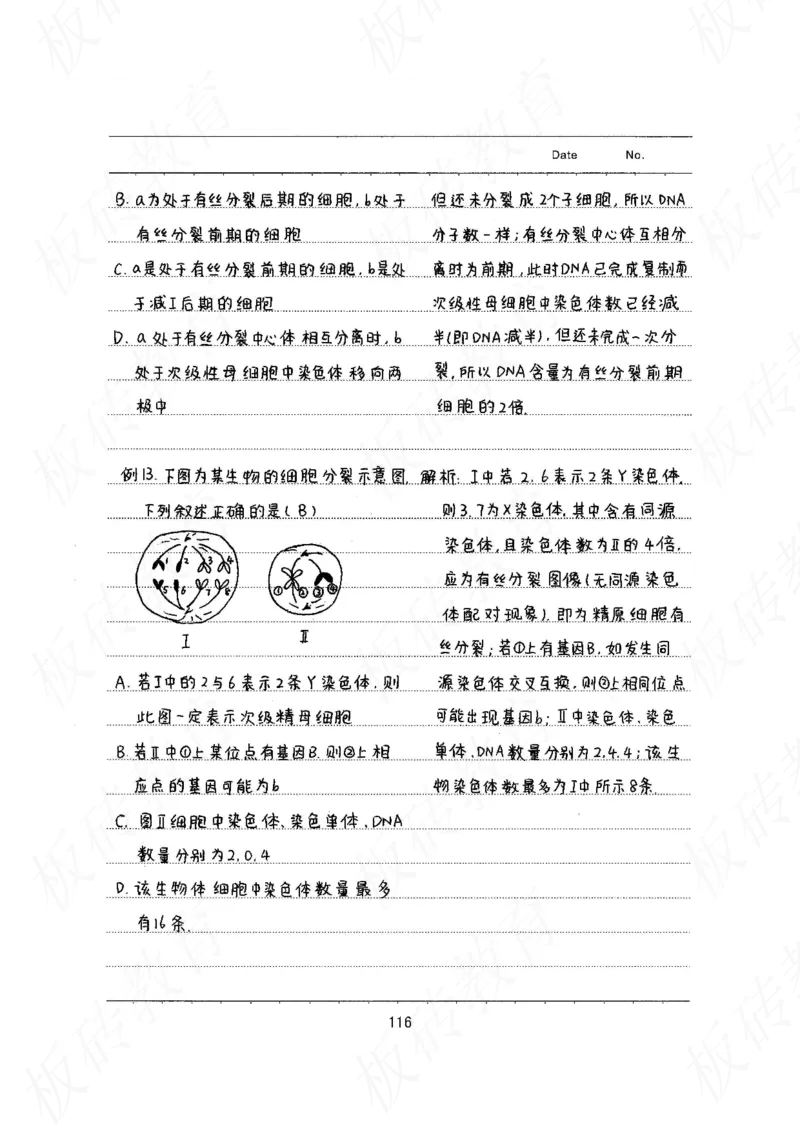 Date No.
B. a为处于有丝分裂后期的细胞,b处于
有丝分裂前期的细胞
C. a是处于有丝分裂前期的细胞,b是处
于减I后期的细胞
D. a处于有丝分裂中心体相互分离时,b
处于次级性母细胞中染色体移向两
极中
但还未分裂成2个子细胞,所以DNA
分子数一样;有丝分裂中心体互相分
离时为前期,此时DNA已完成复制而
次级性母细胞中染色体数已经减
半(即DNA减半),但还未完成一次分
裂,所以DNA含量为有丝分裂前期
细胞的2倍.
例13.下图为某生物的细胞分裂示意图,
下列叙述正确的是(B)
1 2 3 4
5 6 7 8
① ② ③ ④
I II
A. 若I中的2与6表示2条Y染色体,则
此图一定表示次级精母细胞
B. 若II中①上某位点有基因B,则②上相
应点的基因可能为b
C. 图II细胞中染色体、染色单体、DNA
数量分别为2,0,4
D. 该生物体细胞中染色体数量最多
有16条.
解析:I中若2,6表示2条Y染色体,
则3,7为X染色体,其中含有同源
染色体,且染色体数为II的4倍,
应为有丝分裂图像(无同源染色
体配对现象),即为精原细胞有
丝分裂;若①上有基因B,如发生同
源染色体交叉互换,则②上相同位点
可能出现基因b;II中染色体、染色
单体、DNA数量分别为2,4,4;该生
物染色体数最多为I中所示8条.
116
板砖教育